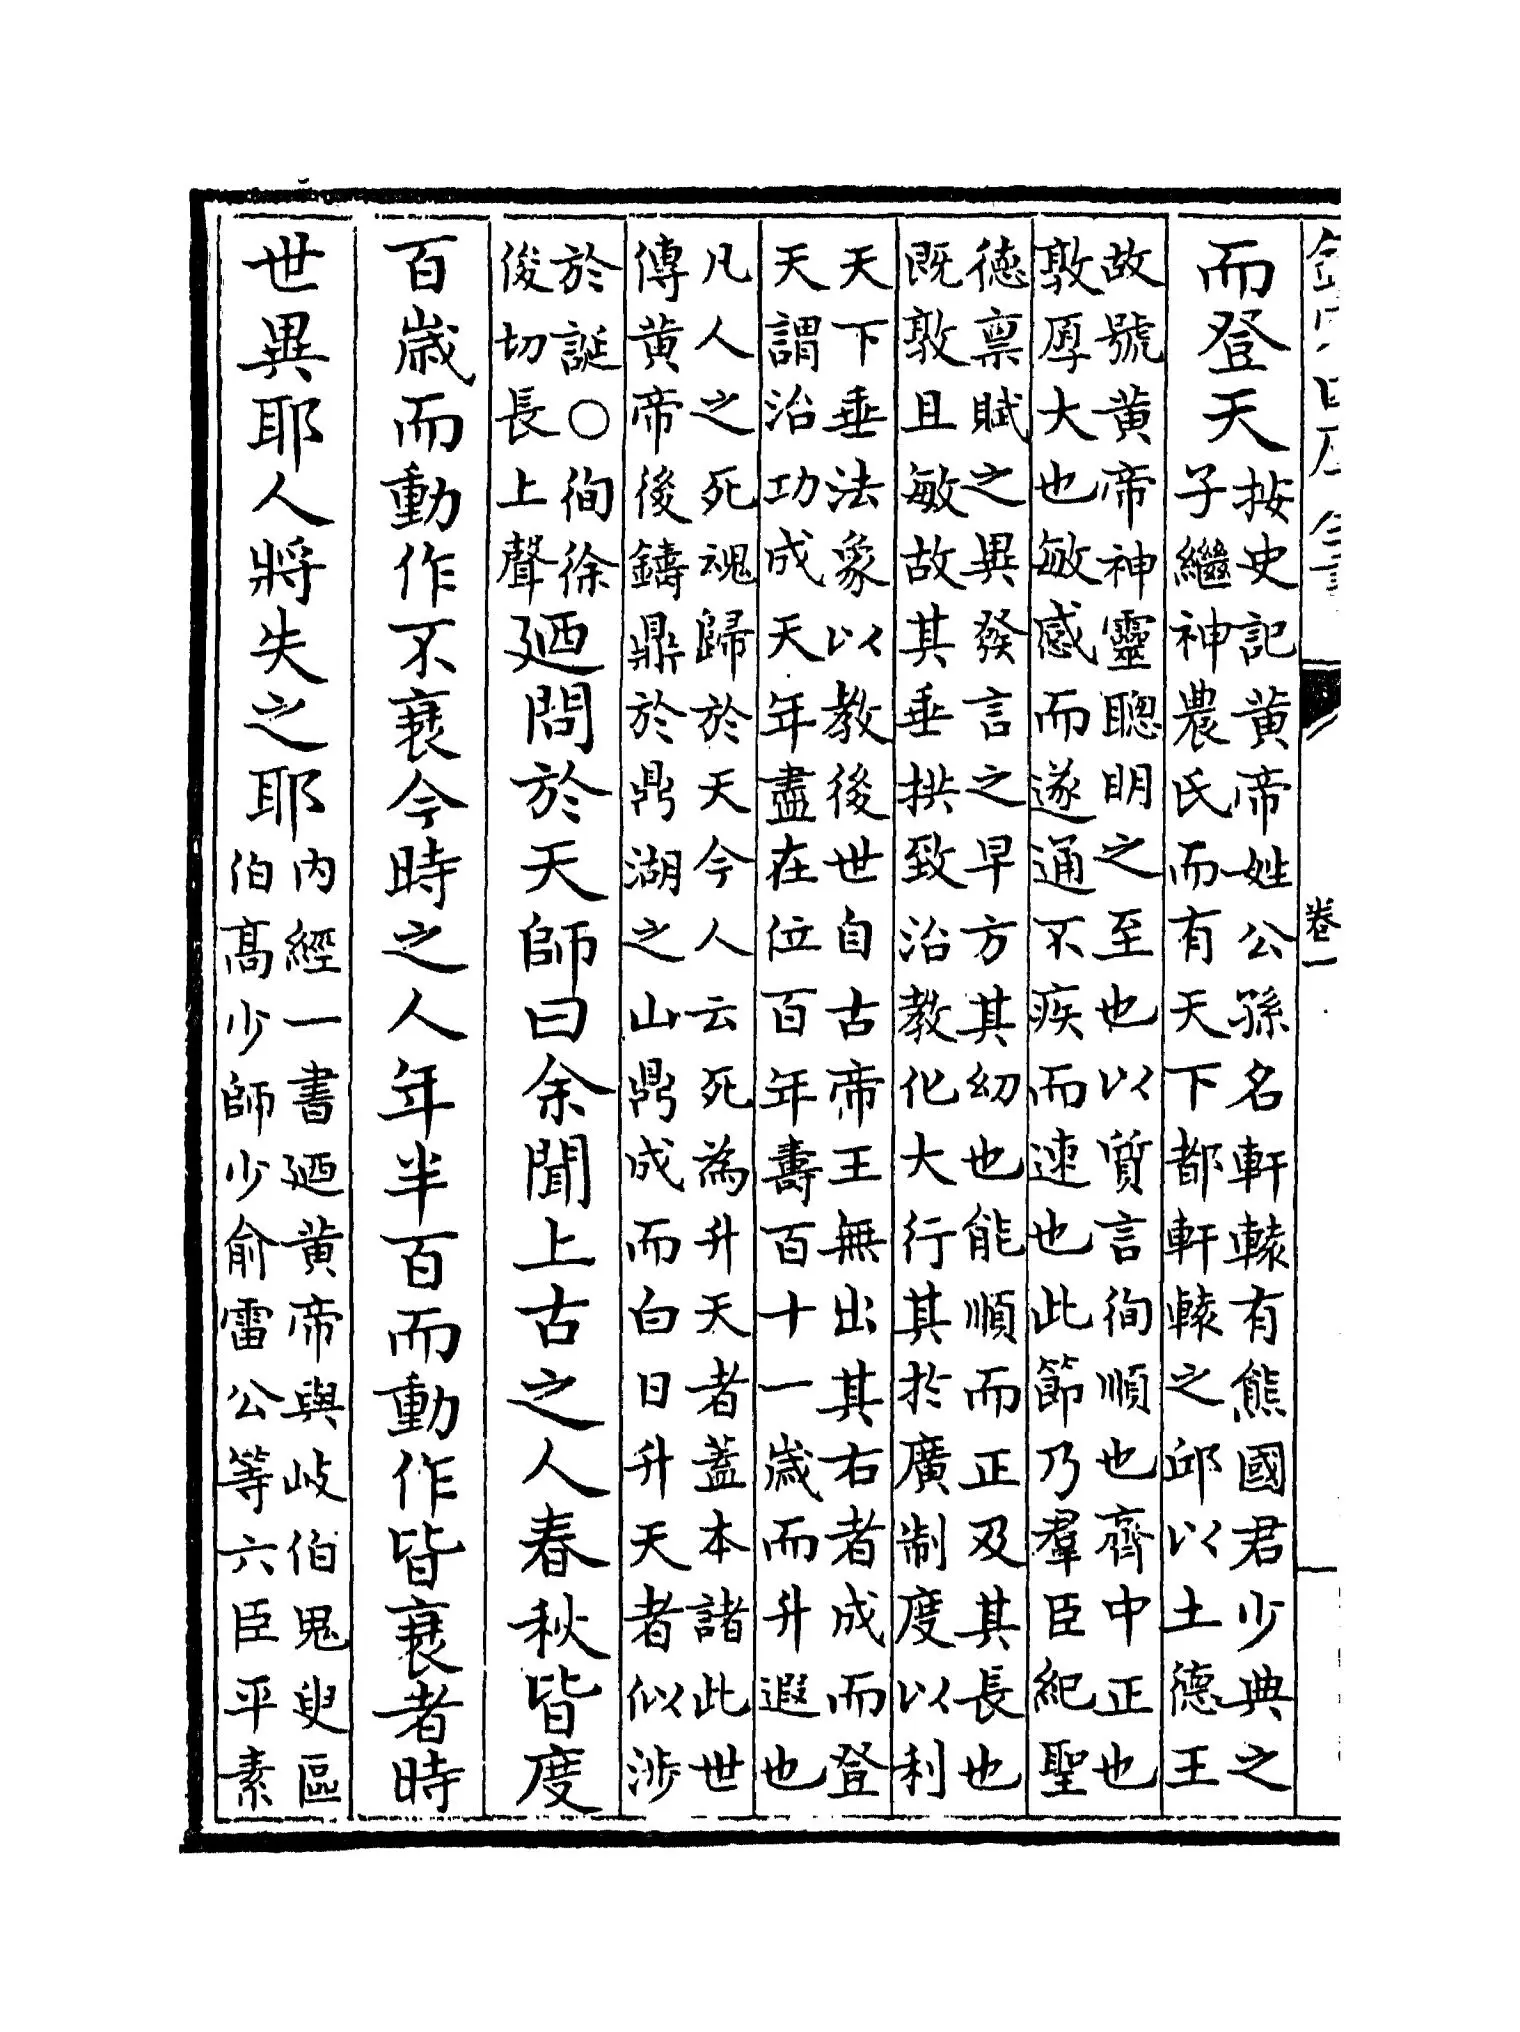 卷一
而登天按史記黄帝姓公孫名軒轅有熊國君少典之
子繼神農氏而有天下都軒轅之邱以土德王
故號黄帝神靈聰明之至也以質言徇順也齊中正也
敦厚大也敏感而遂通不疾而速也此節乃羣臣紀聖
德禀賦之異發言之早方其幼也能順而正及其長也
既敦且敏故其垂拱致治教化大行其於廣制度以利
天下垂法象以教後世自古帝王無出其右者成而登
天謂治功成天年盡在位百年壽百十一歲而升遐也
凡人之死魂歸於天今人云死為升天者蓋本諸此世
傳黄帝後鑄鼎於鼎湖之山鼎成而白日升天者似涉
於誕○徇徐
俊切長上聲廼問於天師曰余聞上古之人春秋皆度
百歲而動作不衰今時之人年半百而動作皆衰者時
世異耶人將失之耶内經一書廼黄帝與岐伯鬼臾區
伯髙少師少俞雷公等六臣平素